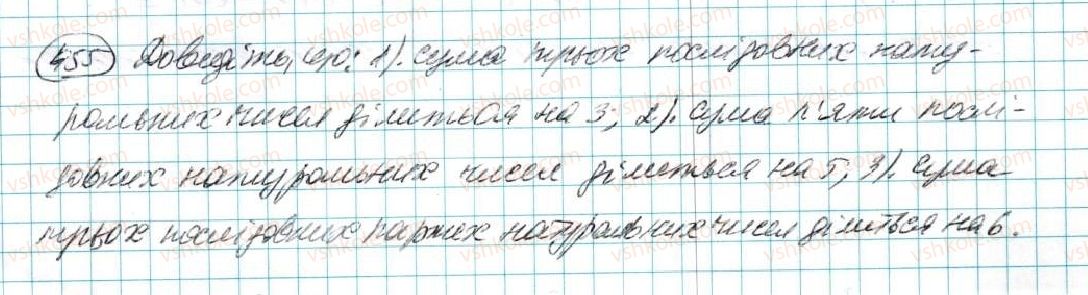 455 Доведіть, що: 1). сума трьох послідовних нату-
ральних чисел ділиться на 3; 2). сума п'яти послі-
довних натуральних чисел ділиться на 5; 3). сума
трьох послідовних парних натуральних чисел ділиться на 6.